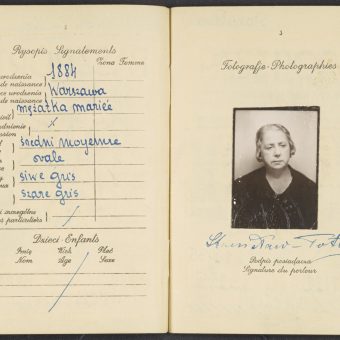 2
Rysopis Signalements
Żona Femme
urodzenia
de naissance
1884
urodzenia
de naissance
Warszawa
mężatka mariée
x
średni moyenne
ovale
siwe gris
szare gris
szczególne
particuliers
Dzieci-Enfants
Imię Wiek Płeć
Nom Age Sexe
3
Fotografje-Photographies
Podpis posiadacza
Signature du porteur